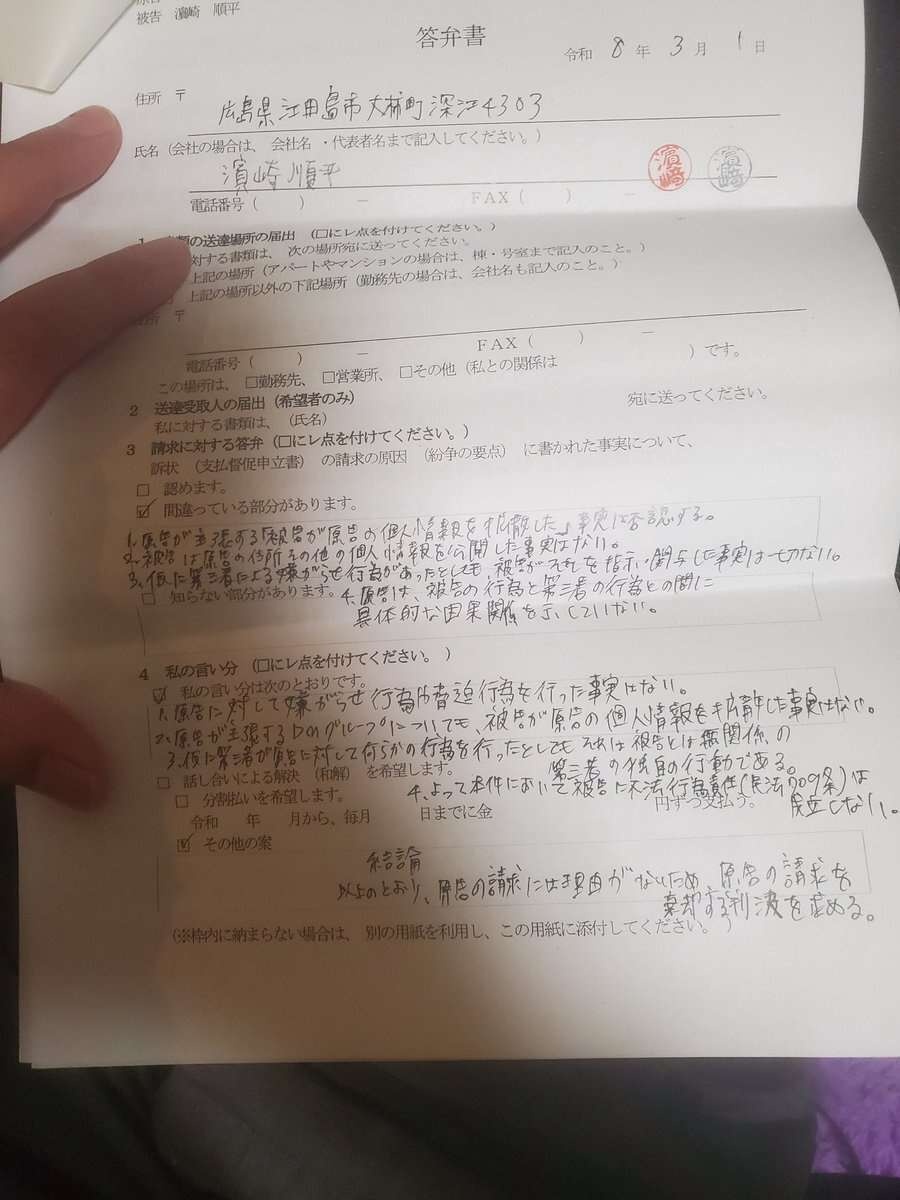 被告 濵崎 順平
答弁書
令和 8 年 3 月 1 日
住所 〒
広島県江田島市大柿町深江4303
氏名（会社の場合は、会社名・代表者名まで記入してください。）
濵崎順平
濵崎 濵崎
電話番号（ ） － FAX（ ） －
の送達場所の届出（□にレ点を付けてください。）
対する書類は、次の場所宛に送ってください。
上記の場所（アパートやマンションの場合は、棟・号室まで記入のこと。）
上記の場所以外の下記場所（勤務先の場合は、会社名も記入のこと。）
〒
電話番号（ ） － FAX（ ） －
この場所は、□勤務先、□営業所、□その他（私との関係は ）です。
2 送達受取人の届出（希望者のみ）
私に対する書類は、（氏名） 宛に送ってください。
3 請求に対する答弁（□にレ点を付けてください。）
訴状（支払督促申立書）の請求の原因（紛争の要点）に書かれた事実について、
□ 認めます。
☑ 間違っている部分があります。
1.原告が主張する「被告が原告の個人情報を拡散した」事実は否認する。
2.被告は原告の住所その他の個人情報を公開した事実はない。
3.仮に第三者による嫌がらせ行為があったとしても、被告がそれを指示・関与した事実は一切ない。
□ 知らない部分があります。
4.原告は、被告の行為と第三者の行為との間に
具体的な因果関係を示していない。
4 私の言い分（□にレ点を付けてください。）
☑ 私の言い分は次のとおりです。
1.原告に対して嫌がらせ行為や脅迫行為を行った事実はない。
2.原告が主張するDMグループについても、被告が原告の個人情報を拡散した事実はない。
3.仮に第三者が原告に対して何らかの行為を行ったとしてもそれは被告とは無関係の
第三者の独自の行動である。
□ 話し合いによる解決（和解）を希望します。
4.よって本件において被告に不法行為責任（民法709条）は
成立しない。
□ 分割払いを希望します。
令和 年 月から、毎月 日までに金 円ずつ支払う。
☑ その他の案
結論
以上のとおり、原告の請求には理由がないため、原告の請求を
棄却する判決を求める。
（※枠内に納まらない場合は、別の用紙を利用し、この用紙に添付してください。）